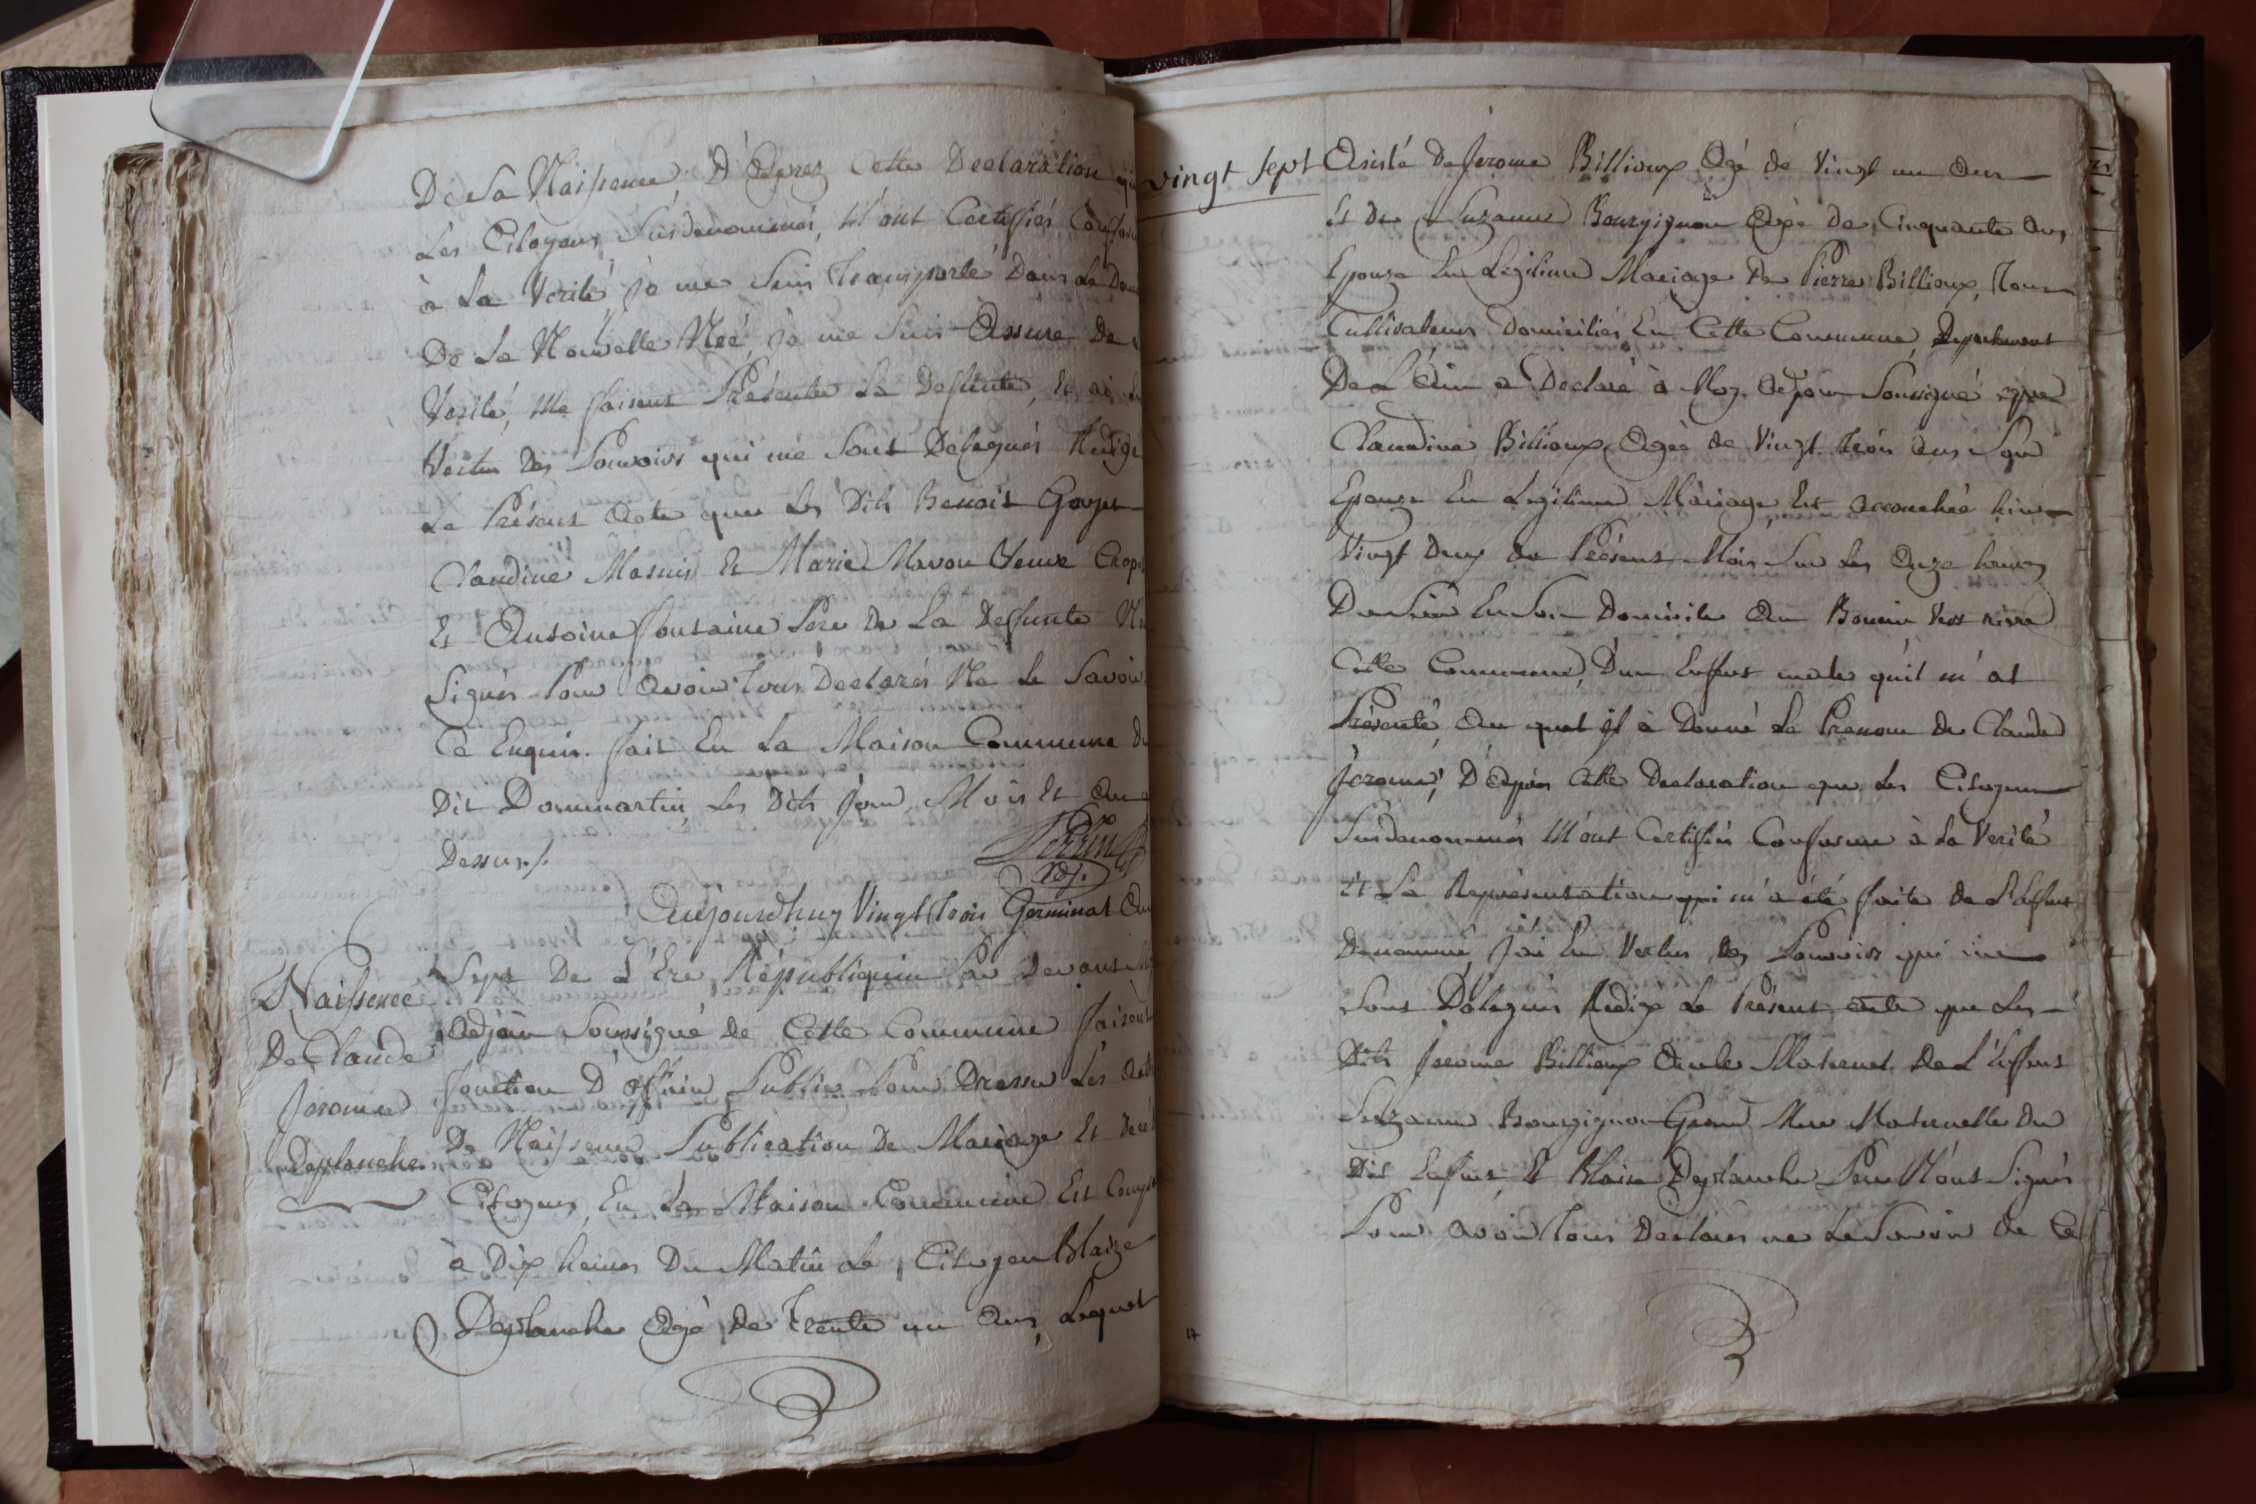 De Sa Naissence, D'Aprez Cette Declaration que
Les Citoyens Susdenommés, M'ont Certiffiés Confor
à La Verité Je me Suis Transporté Dans Le Dom
De La Nouvelle Née, Je me Suis Assure De
Verité, Me faisent Présenter La Deffunte, Et ai
Vertu Des Pouvoirs qui me Sont Delegués Redigé
Le Présent Acte que Les Dits Benoit Goyet
Claudine Et Marie Mavon Veuve
Et Antoine fontaine Pere De La Deffunte N'
Signés Pour Avoir Tous Declarés Ne Le Savoir
Ce Enquis. fait En La Maison Commune Du
Dit Dommartin, Les Dits Jour, Mois Et An
Dessus./.
Adj.
Aujourdhuy Vingt Trois Germinal An
Sept De L'Ere Républiquin Par Devant M
Naissence
Adjoin Soussigné de Cette Commune faisent
De Claude
fonction D'officié Public Pour Dresser Les Acte
Jerome
De Naissence Publication De Mariage Et Decé
Deplanche
Citoyens, En La Maison Commune Est Comp
à Dix heures Du Matin Le Citoyen Blaize
Deplanche Agé De Trente un Ans, Lequel
vingt Sept
Asisté De Jerome Billioux Agé de Vingt un Ans
Et De Suzanne Bourgignon Agée De Cinquante Ans
Epouse En Legitime Mariage De Pierre Billioux, Tous
Cultivateurs Domiciliés En Cette Commune, Departement
De L'Ain a Declaré à Moy Adjoin Soussigné que
Claudine Billioux Agée de Vingt Trois Ans Son
Epouse En Legitime Mariage, Est accouchée hier
Vingt Deux du Présent Mois Sur Les Onze heures
Du Soir En Son Domicile Au
Cette Commune, D'un Enfent male qu'il m'at
Présenté, Au quel il à Donné Le Prenom De Claude
Jerome, D'Après Cette Declaration que Les Citoyens
Susdenommés M'ont Certifiés Conforme à La Verité
Et La Représentation qui m'a été faite De L'Enfent
Denommé, J'ai En Vertus Des Pouvoirs qui me
Sont Délegués Redigé Le Présent acte que Les
Dits Jerome Billioux Oncle Maternel De L'Enfent
Suzanne Bourgignon Grand Mere Maternelle Du
Dit Enfent, Et Blaise Deplanche Pere N'ont Signés
Pour avoir Tous Declarés ne Le Savoir De Ce
17